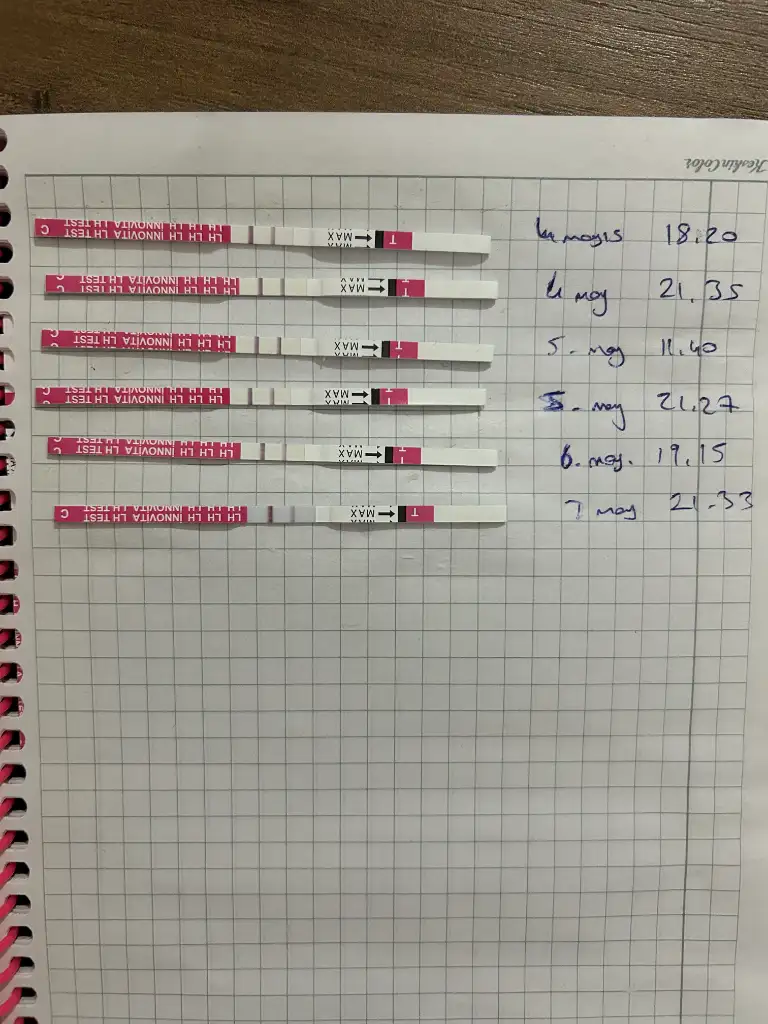 KeskinColor
C LH TEST INNOVITA LH LH LH LH MAX T 4 mayıs 18.20
C LH TEST INNOVITA LH LH LH LH MAX T 4 may 21.35
C LH TEST INNOVITA LH LH LH LH MAX T 5. may 11.40
C LH TEST INNOVITA LH LH LH LH MAX T 5. may 21.27
C LH TEST INNOVITA LH LH LH LH MAX T 6. may. 19.15
C LH TEST INNOVITA LH LH LH LH MAX T 7 may 21.33